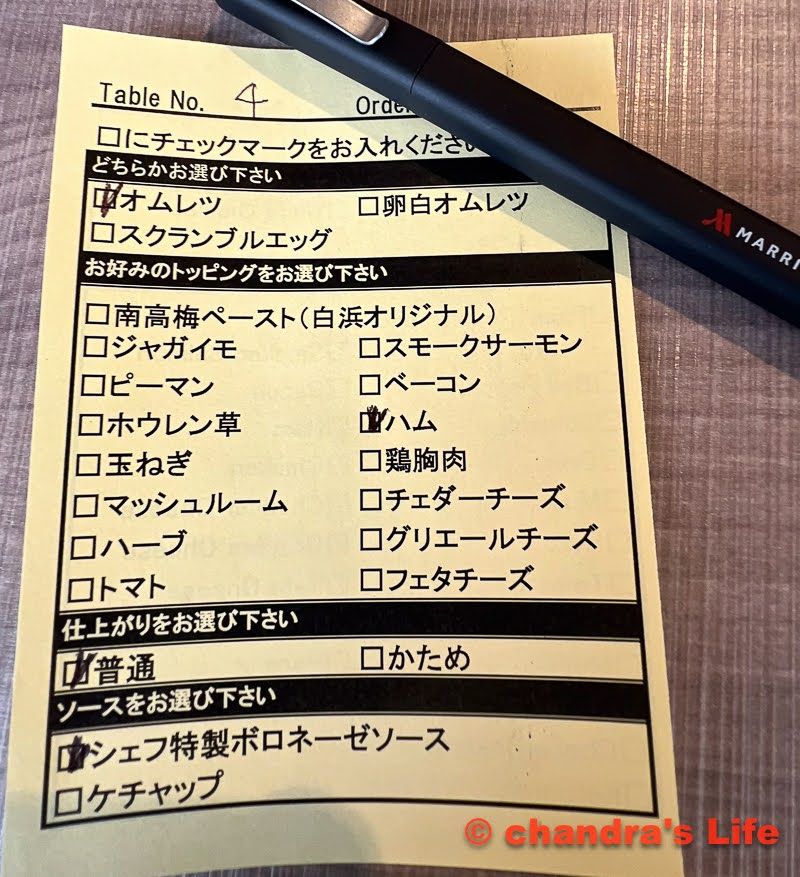 Table No. 4
□にチェックマークをお入れください
どちらかお選び下さい
☑オムレツ □卵白オムレツ
□スクランブルエッグ
お好みのトッピングをお選び下さい
□南高梅ペースト(白浜オリジナル)
□ジャガイモ □スモークサーモン
□ピーマン □ベーコン
□ホウレン草 ☑ハム
□玉ねぎ □鶏胸肉
□マッシュルーム □チェダーチーズ
□ハーブ □グリエールチーズ
□トマト □フェタチーズ
仕上がりをお選び下さい
☑普通 □かため
ソースをお選び下さい
☑シェフ特製ボロネーゼソース
□ケチャップ
© chandra's Life